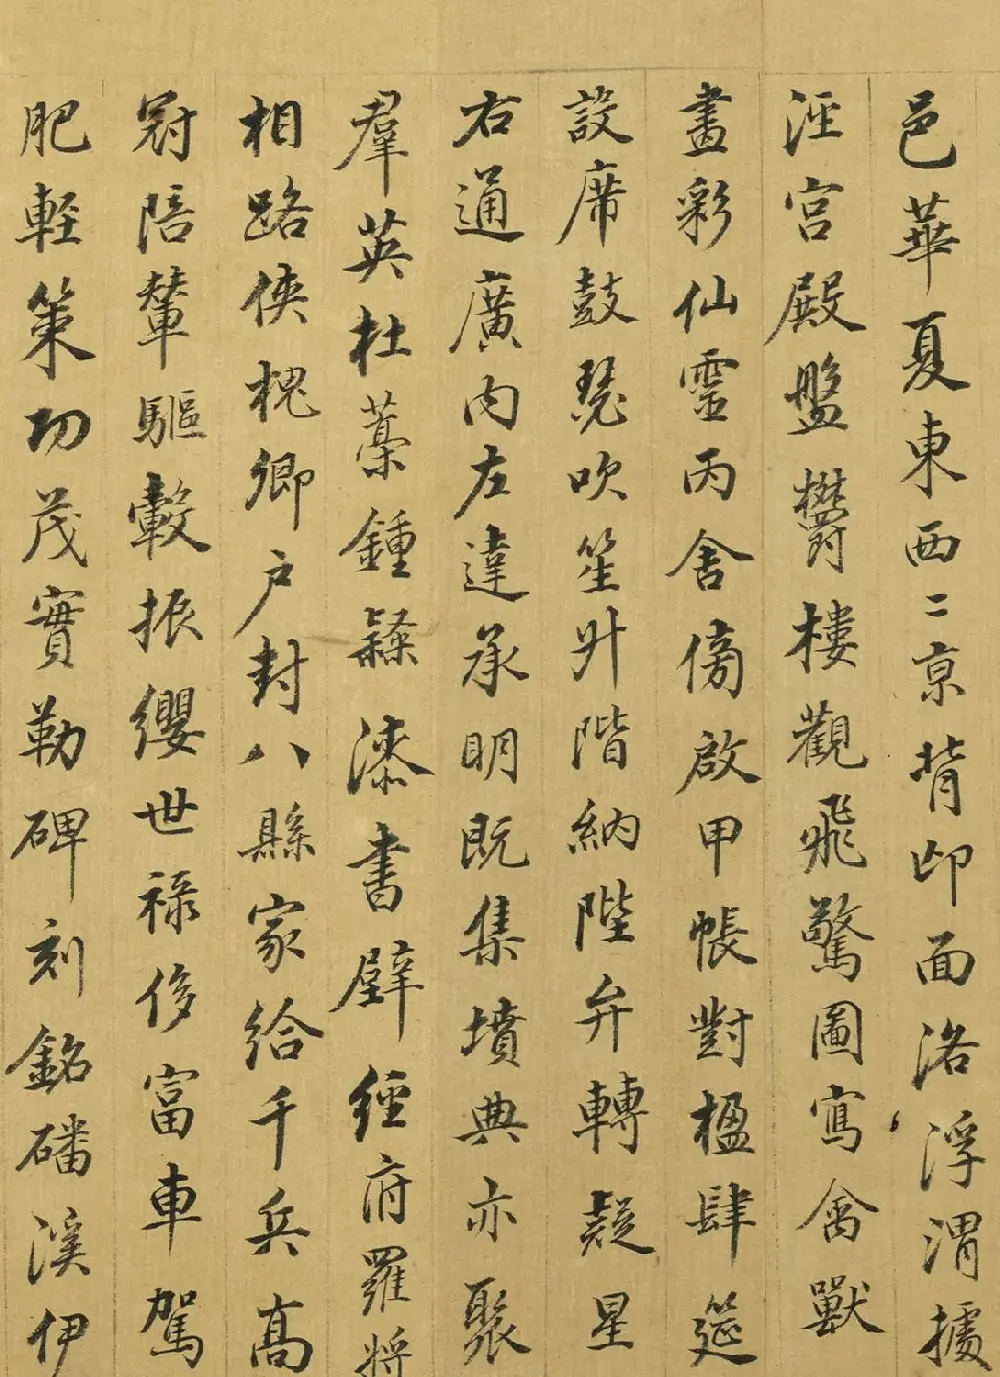 邑華夏東西二京背邙面洛浮渭據
涇宮殿盤鬱樓觀飛驚圖寫禽獸
畫彩仙靈丙舍傍啟甲帳對楹肆筵
設席鼓瑟吹笙升階納陛弁轉疑星
右通廣內左達承明既集墳典亦聚
羣英杜藁鍾隸漆書壁經府羅將
相路俠槐卿戶封八縣家給千兵高
冠陪輦驅轂振纓世祿侈富車駕
肥輕策功茂實勒碑刻銘磻溪伊